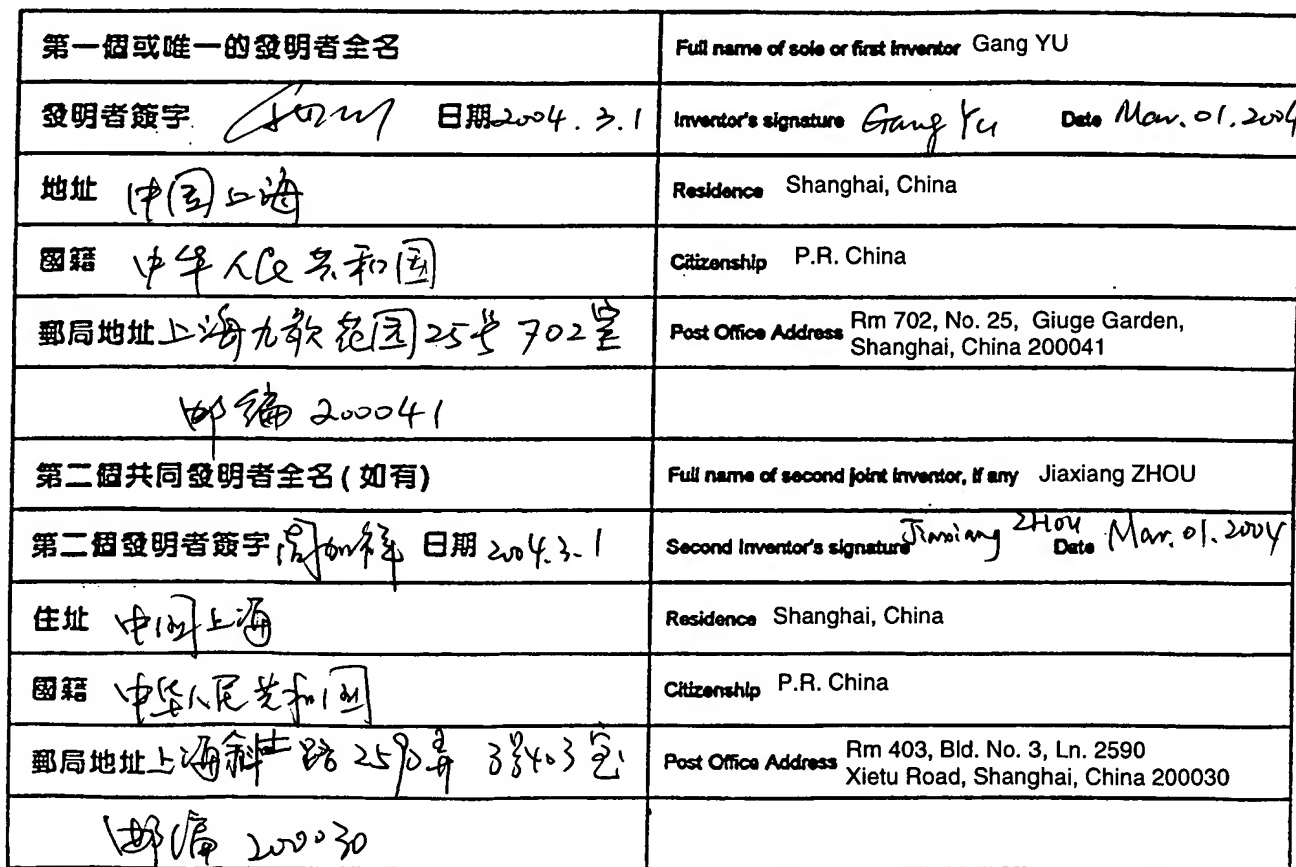 第一個或唯一的發明者全名 Full name of sole or first inventor Gang YU
發明者簽字 日期2004.3.1 Inventor's signature Gang Yu Date Mar.01.2004
地址 中国上海 Residence Shanghai, China
國籍 中华人民共和国 Citizenship P.R. China
郵局地址 上海九歌花园25号702室 Post Office Address Rm 702, No. 25, Giuge Garden,
Shanghai, China 200041
邮编 200041
第二個共同發明者全名(如有) Full name of second joint inventor, if any Jiaxiang ZHOU
第二個發明者簽字 周加祥 日期 2004.3.1 Second Inventor's signature Jiaxiang ZHOU Date Mar.01.2004
住址 中国上海 Residence Shanghai, China
國籍 中华人民共和国 Citizenship P.R. China
郵局地址 上海斜土路2590弄3号403室 Post Office Address Rm 403, Bld. No. 3, Ln. 2590
Xietu Road, Shanghai, China 200030
邮编 200030